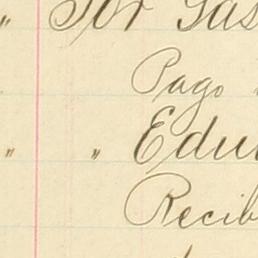 " Por Gas
Pago
" " Edu
Recib